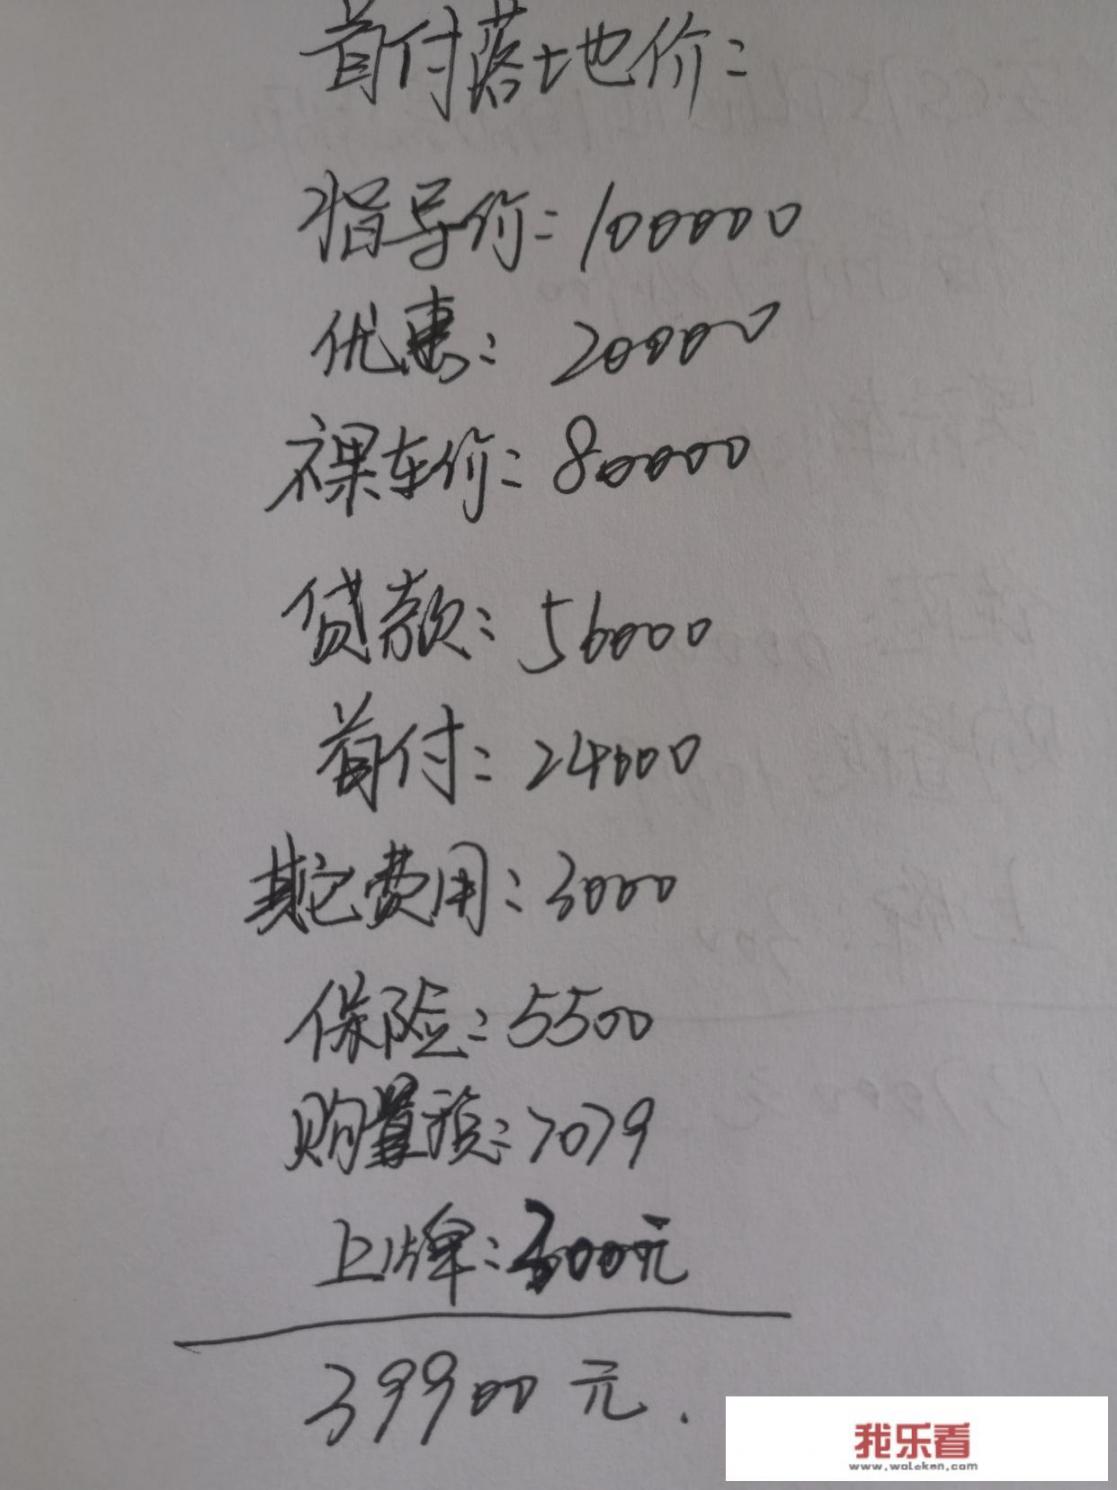 首付落地价：
指导价：100000
优惠：20000
裸车价：80000
贷款：56000
首付：24000
其它费用：3000
保险：5500
购置税：7079
上牌：300元
39900元.
我乐看
www.woleken.com